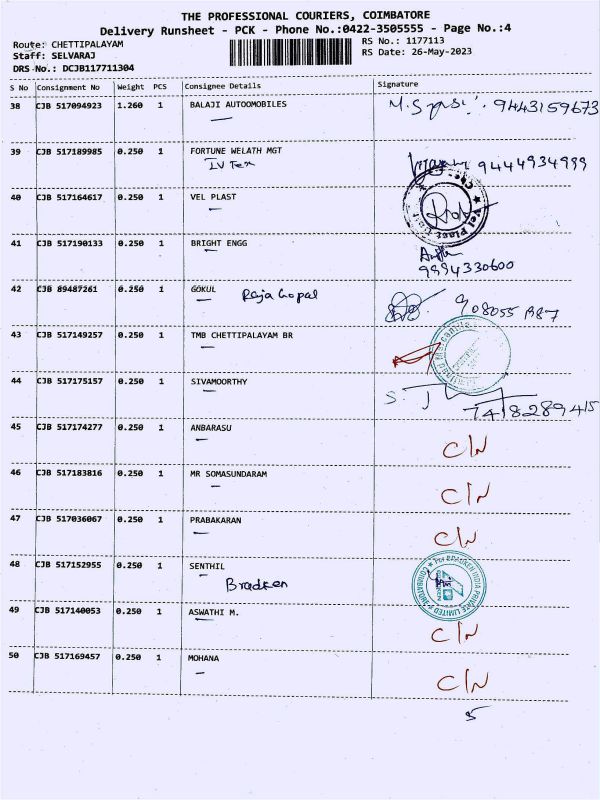 THE PROFESSIONAL COURIERS, COIMBATORE
Delivery Runsheet - PCK - Phone No.:0422-3505555 - Page No.:4
Route: CHETTIPALAYAM
RS No.: 1177113
Staff: SELVARAJ
RS Date: 26-May-2023
DRS No.: DCJB117711304
S No Consignment No Weight PCS Consignee Details Signature
38 CJB 517094923 1.260 1 BALAJI AUTOOMOBILES 9443159673
39 CJB 517189985 0.250 1 FORTUNE WELATH MGT
9444934999
40 CJB 517164617 0.250 1 VEL PLAST
Vel Plast
41 CJB 517190133 0.250 1 BRIGHT ENGG
9994330600
42 CJB 89487261 0.250 1 GOKUL
Raja Gopal
43 CJB 517149257 0.250 1 TMB CHETTIPALAYAM BR
44 CJB 517175157 0.250 1 SIVAMOORTHY
7418289415
45 CJB 517174277 0.250 1 ANBARASU
C/N
46 CJB 517183816 0.250 1 MR SOMASUNDARAM
C/N
47 CJB 517036067 0.250 1 PRABAKARAN
C/N
48 CJB 517152955 0.250 1 SENTHIL
Bradken
For BRADKEN INDIA PRIVATE LIMITED
COIMBATORE
49 CJB 517140053 0.250 1 ASWATHI M.
C/N
50 CJB 517169457 0.250 1 MOHANA
C/N
5